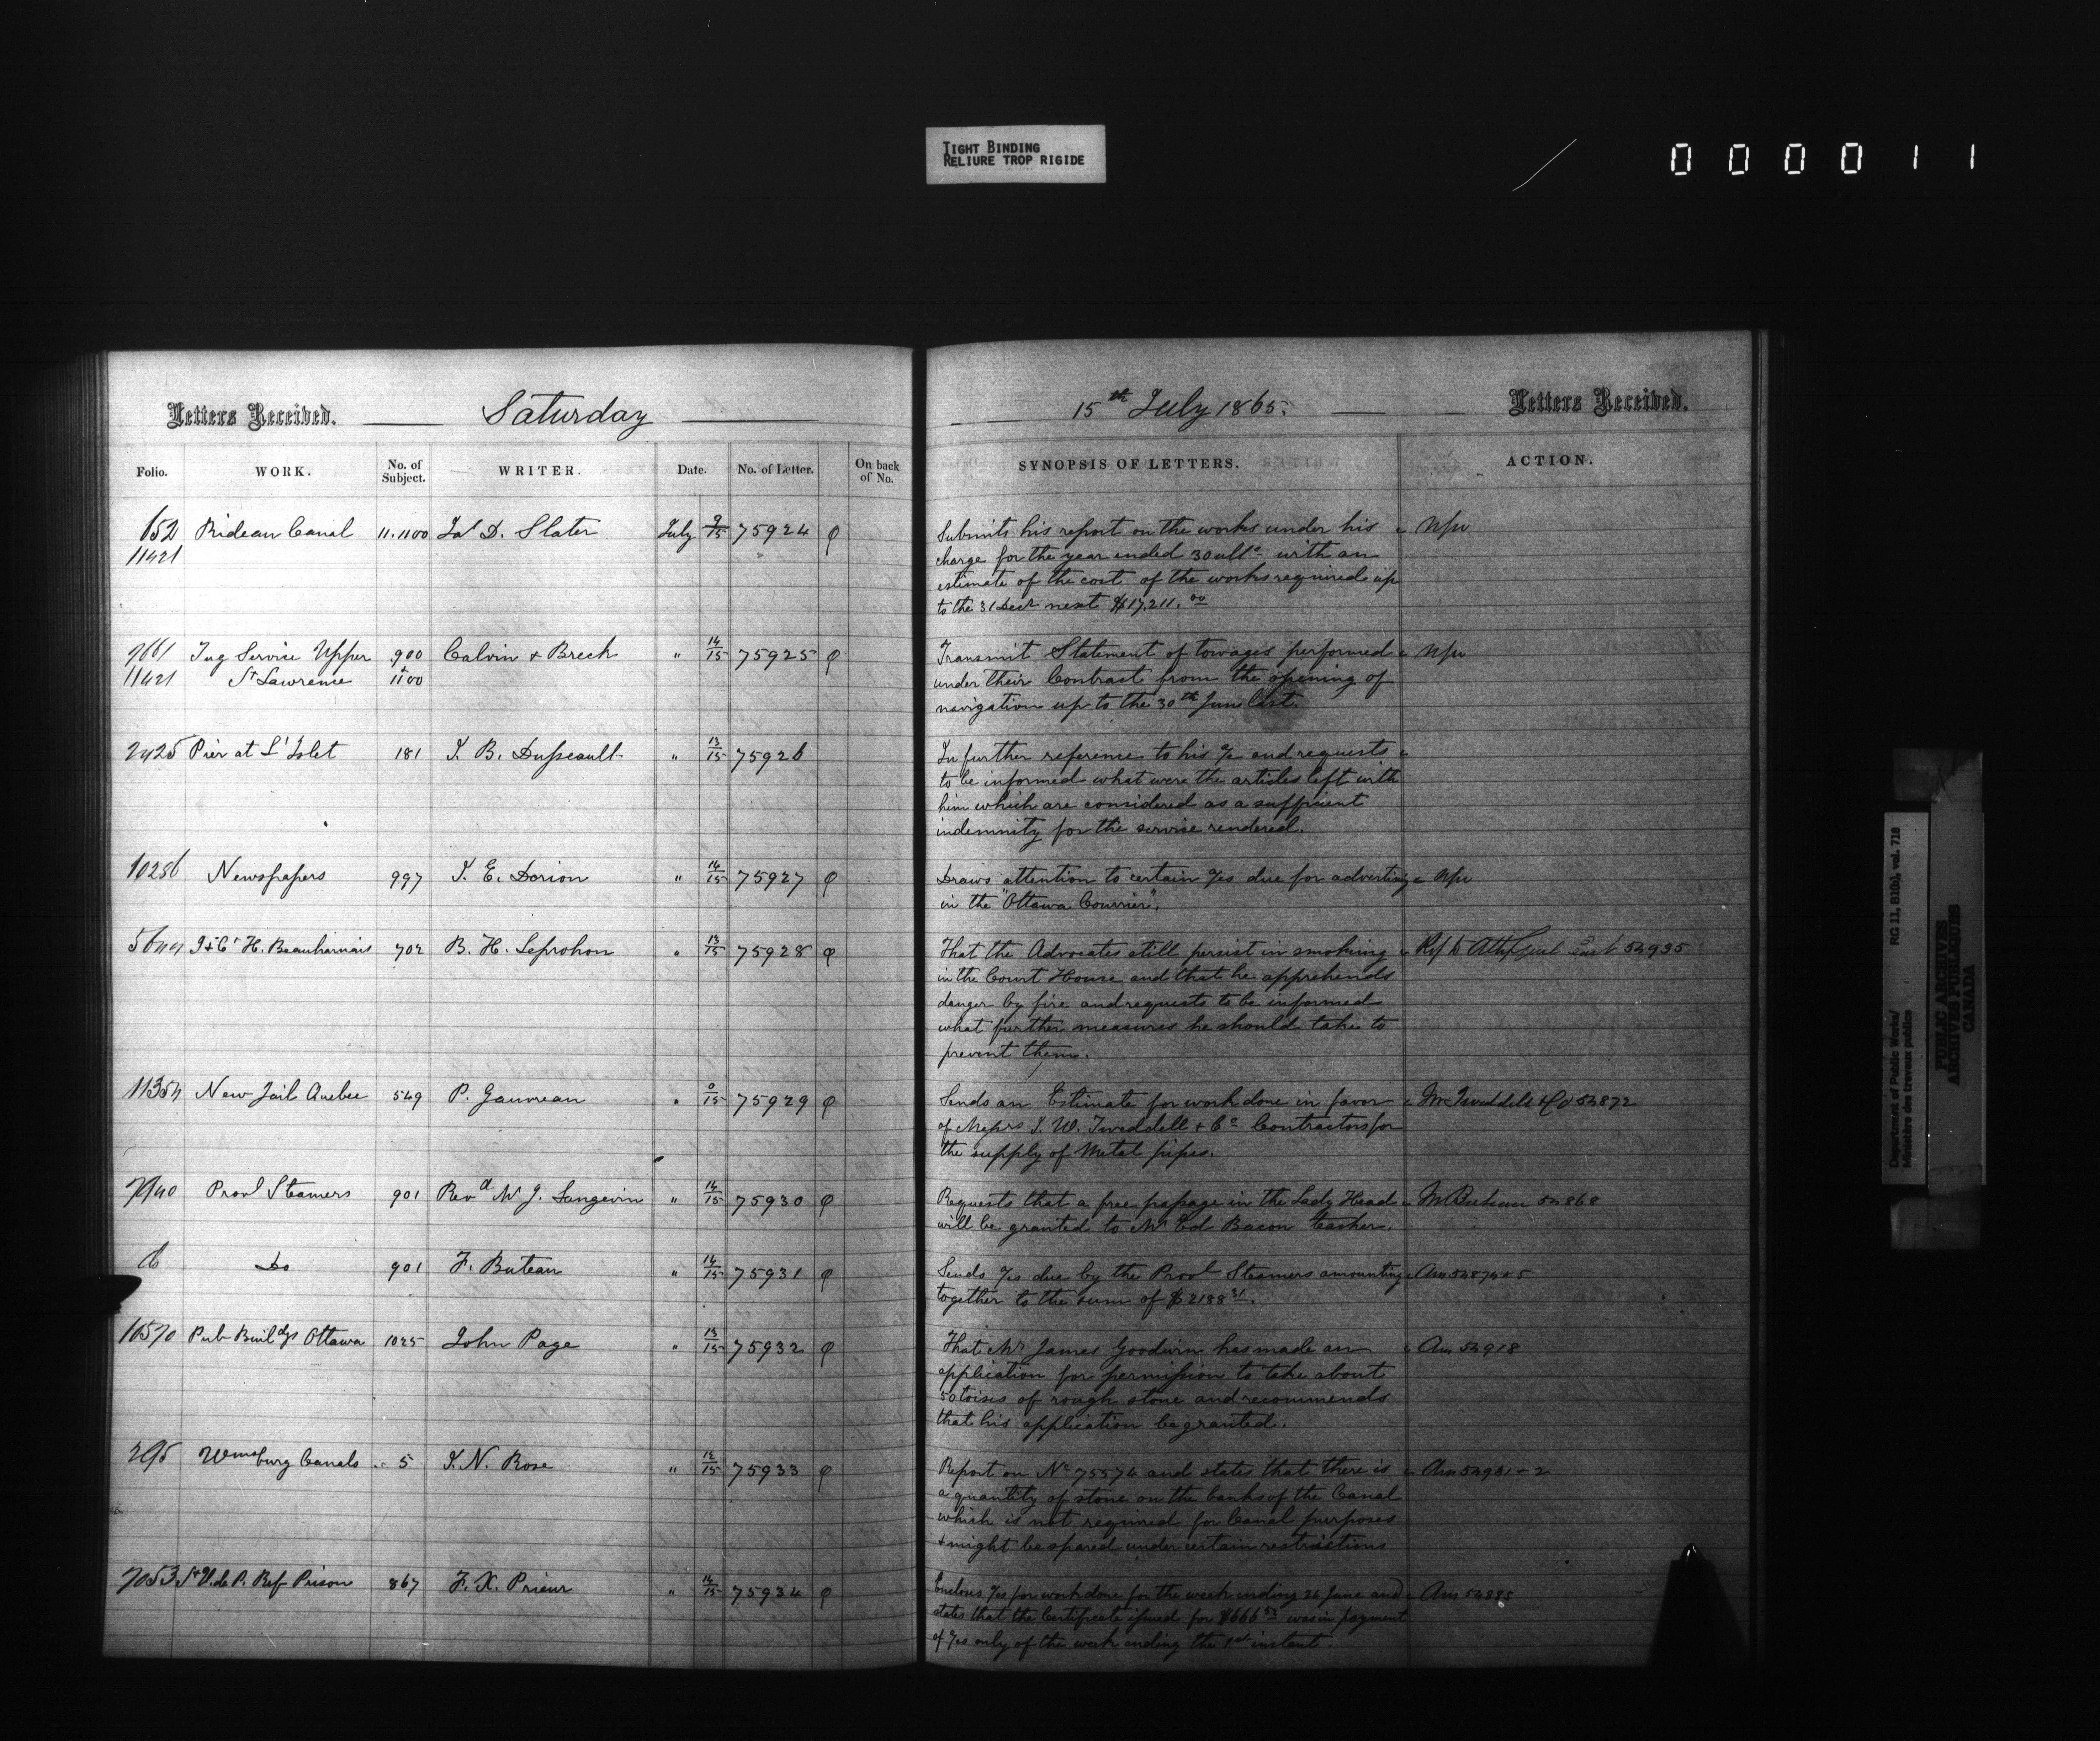 TIGHT BINDING
RELIURE TROP RIGIDE
000011
Letters Received. Saturday
15th July 1865. Letters Received.
Folio. WORK. No. of Subject. WRITER. Date. No. of Letter. On back of No.
SYNOPSIS OF LETTERS. ACTION.
652 Rideau Canal 11.1100 Jas D. Slater July 9/15 75924 φ
11421
Submits his report on the works under his
charge for the year ended 30 ulto with an
estimate of the cost of the works required up
to the 31 Decr next $17,211.00
7661 Tug Service Upper 900 Calvin + Breck " 14/15 75925 φ
11421 St Lawrence + 1100
Transmit Statement of towages performed
under their Contract from the opening of
navigation up to the 30th June last.
2425 Pier at L'Islet 181 J. B. Dusseault " 13/15 75926
In further reference to his % and requests
to be informed what were the articles left with
him which are considered as a sufficient
indemnity for the service rendered.
10286 Newspapers 997 J. E. Dorion " 14/15 75927 φ
Draws attention to certain %s due for advertizg
in the "Ottawa Courrier".
5644 J & Ct H. Beauharnais 702 B. H. Leprohon " 13/15 75928 φ
That the Advocates still persist in smoking Ref to 54935
in the Court House and that he apprehends
danger by fire and requests to be informed
what further measures he should take to
prevent them.
11354 New Jail Quebec 549 P. Gauvreau " 75929 φ
Sends an Estimate for work done in favor Mr Tweddell + Co 54872
of Messrs J. W. Tweddell + Co Contractors for
the supply of Metal pipes.
7940 Provl Steamers 901 Revd Mr J. Langevin " 14/15 75930 φ
Requests that a free passage in the Lady Head 54868
will be granted to Mr Ed Bacon
Do 901 F. Buteau " 14/15 75931 φ
Sends %s due by the Provl Steamers amounting Ans 54874 + 5
together to the sum of $2188 31.
10570 Pub Buildgs Ottawa 1025 John Page " 13/15 75932 φ
That Mr James Goodwin has made an Ans 54918
application for permission to take about
50 toises of rough stone and recommends
that his application be granted.
295 Wmsburg Canals 5 J. N. Rose " 75933 φ
Report on No 75574 and states that there is Ans 54981 + 2
a quantity of stone on the banks of the Canal
which is not required for Canal purposes
+ might be spared under certain restrictions
7053 St V. de P. Ref Prison 867 F. X. Prieur " 14/15 75934 φ
Encloses %s for work done for the week ending 24 June and Ans 54885
states that the Certificate issued for $666 53 was in payment
of %s only of the week ending the 1st instant.
Department of Public Works/
Ministère des travaux publics
RG 11, B1(b), vol. 718
PUBLIC ARCHIVES
ARCHIVES PUBLIQUES
CANADA